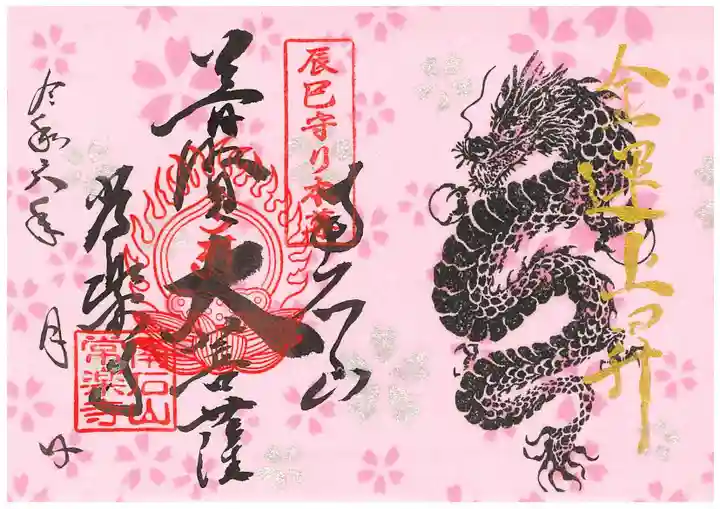 金運上昇
辰巳守り本尊
南石山
普賢大菩薩
常楽寺
南石山
常楽寺
令和六年 月 日